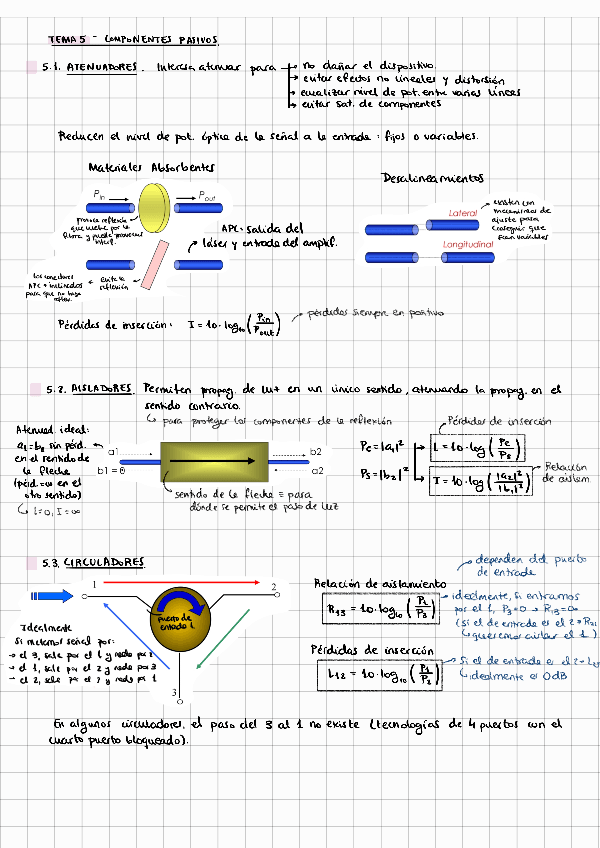 TEMA 5 - COMPONENTES PASIVOS.
5.1. ATENUADORES. Interesa atenuar para
→ no dañar el dispositivo.
→ evitar efectos no lineales y distorsión
→ ecualizar nivel de pot. entre varias líneas
→ evitar sat. de componentes
Reducen el nivel de pot. óptica de la señal a la entrada: fijos o variables.
Materiales Absorbentes
Desalineamientos
Pin
Pout
provoca reflexión
que vuelve por la
fibra y puede provocar
interf.
APC: salida del
láser y entrada del amplif.
los conectores
APC + inclinados
para que no haya
evita la
reflexión
Lateral
Longitudinal
existen con
mecanismos de
ajuste para
conseguir que
sean variables
Pérdidas de inserción: I = 10·log10 (Pin/Pout)
pérdidas siempre en positivo
5.2. AISLADORES. Permiten propag. de luz en un único sentido, atenuando la propag. en el
sentido contrario.
↳ para proteger los componentes de la reflexión
Atenuad. ideal:
a1=b2 sin pérd.
en el sentido de
la flecha
(pérd=∞ en el
otro sentido)
↳ L=0, I=∞
a1
b1 = 0
b2
a2
sentido de la flecha ≡ para
dónde se permite el paso de luz
Pe=|a1|²
Ps=|b2|²
Pérdidas de inserción
L = 10·log (Pe/Ps)
I = 10·log (|a2|²/|b1|²)
Relación
de aislam.
5.3. CIRCULADORES
1
2
3
puerto de
entrada 1.
Idealmente
Si metemos señal por:
→ el 3, sale por el 1 y nada por 2
→ el 1, sale por el 2 y nada por 3
→ el 2, sale por el 3 y nada por 1
Relación de aislamiento
R13 = 10·log10 (P1/P3)
Pérdidas de inserción
L12 = 10·log10 (P1/P2)
dependen del puerto
de entrada
idealmente, si entramos
por el 1, P3=0 → R13=∞
(si el de entrada es el 2 → R21
↳ queremos aislar el 1)
Si el de entrada es el 2 →
↳ idealmente es 0dB
En algunos circuladores, el paso del 3 al 1 no existe (tecnologías de 4 puertos con el
cuarto puerto bloqueado).